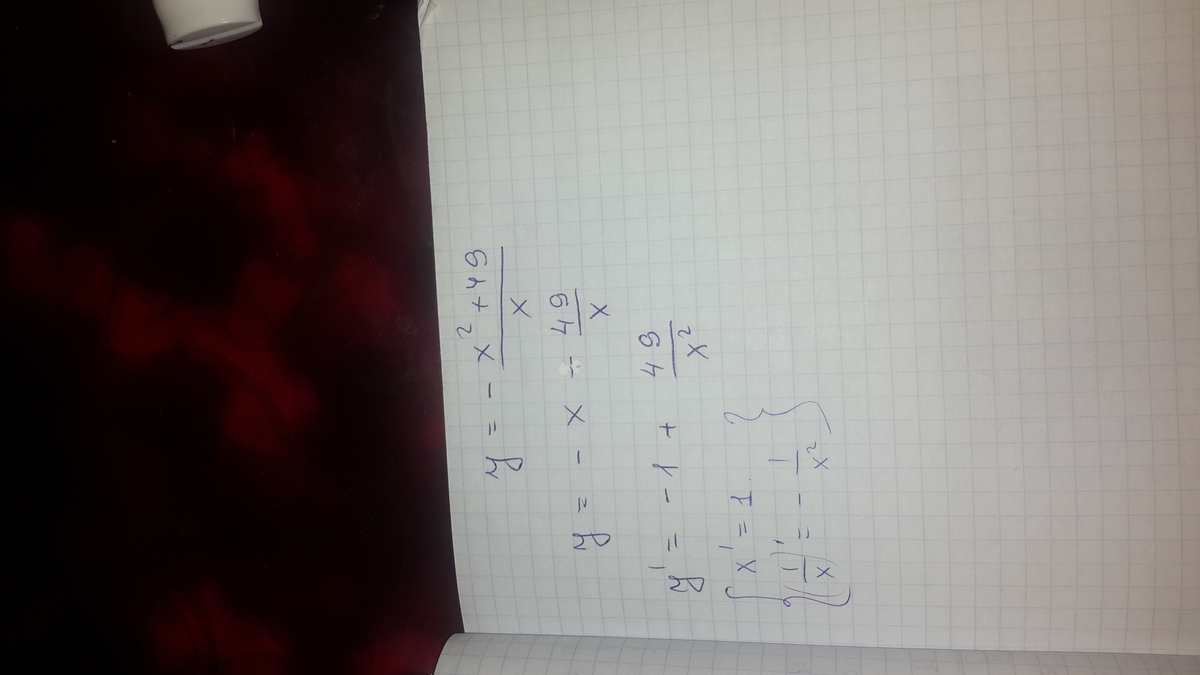 y = - \frac{x^2 + 49}{x}
y = - x - \frac{49}{x}
y' = -1 + \frac{49}{x^2}
{ x' = 1 }
{ (\frac{1}{x})' = - \frac{1}{x^2} }